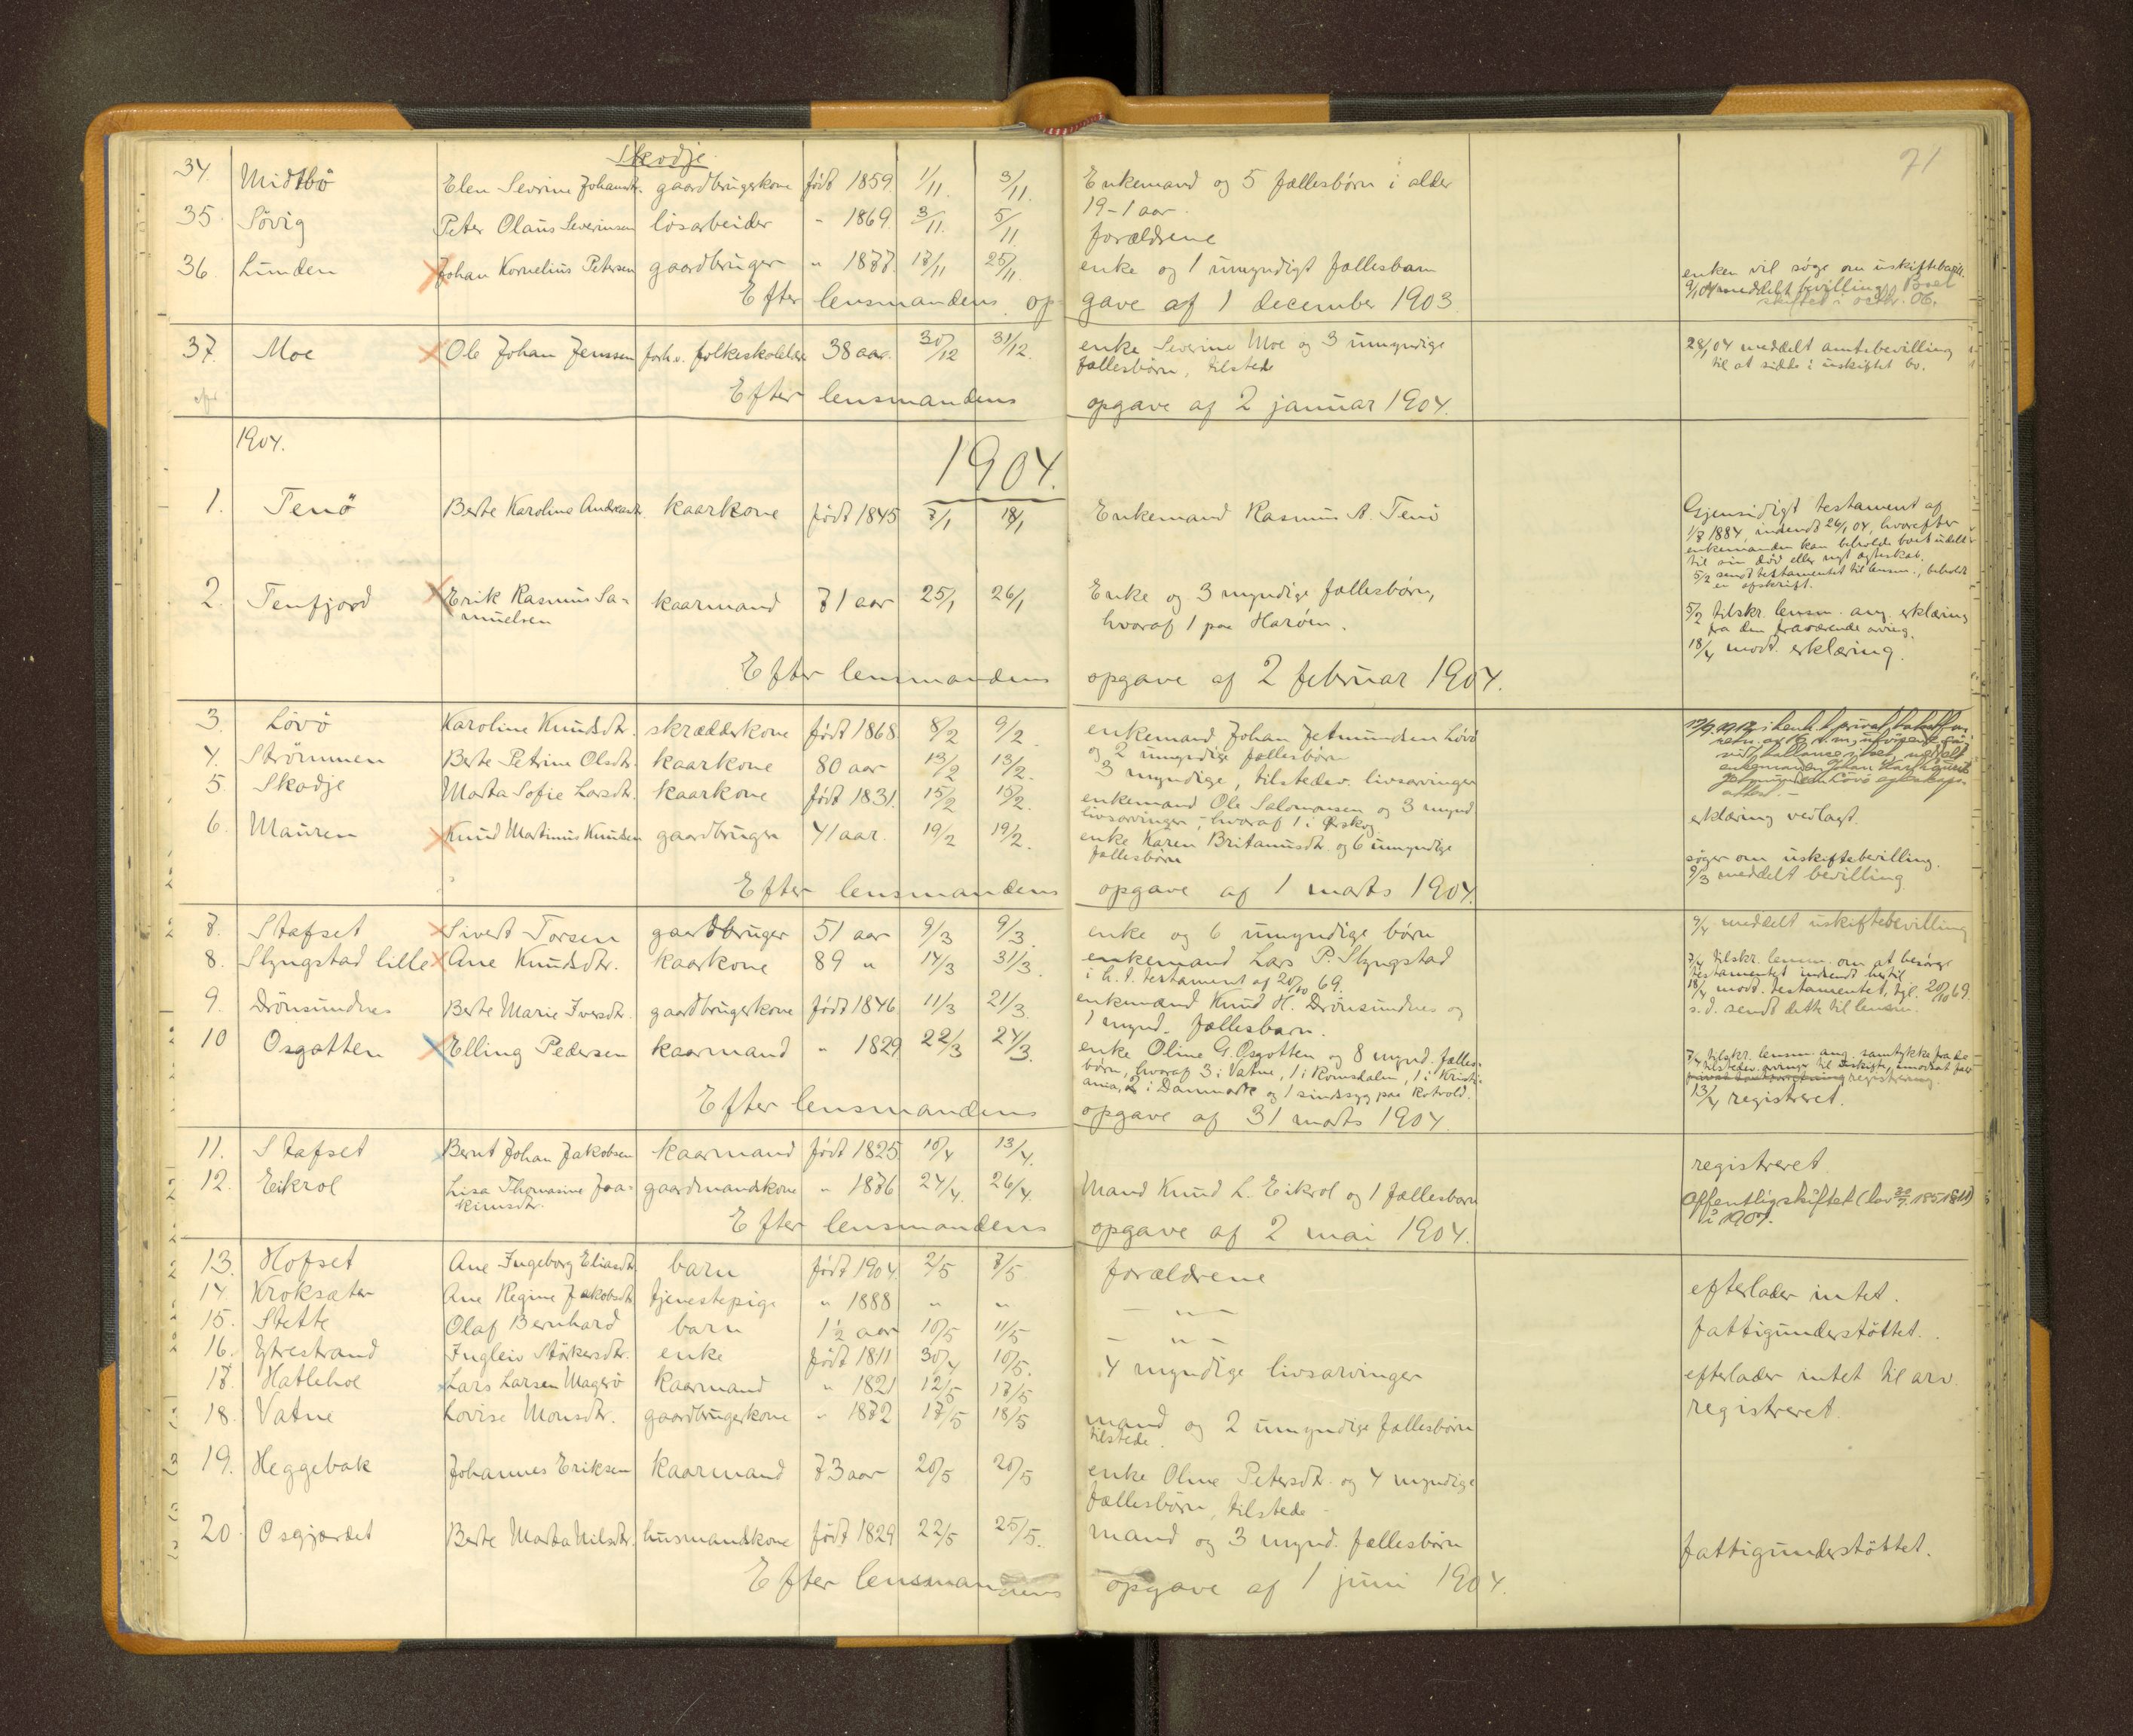 Skodje.
71
34. Midtbö Elen Sevrine Johansdtr. gaardbrugerkone født 1859. 1/11. 3/11. Enkemand og 5 fællesbörn i alder
19-1 aar.
35. Sövig Peter Olaus Severinsen lösarbeider " 1869. 3/11. 5/11. forældrene
36. Lunden Johan Kornelius Petersen gaardbruger " 1877. 17/11 25/11. enke og 1 umyndigt fællesbarn enken vil søge om uskiftebevill.
9/1 04 meddelt bevilling. Boet
skiftet i oktbr. 06.
Efter lensmandens opgave af 1 december 1903.
37. Moe Ole Johan Jenssen forh.v. folkeskolelær 38 aar. 30/12 31/12. enke Severine Moe og 3 umyndige 28/1 04 meddelt amtsbevilling
fællesbörn, tilstede til at sidde i uskiftet bo.
Efter lensmandens opgave af 2 januar 1904.
1904.
1904.
1. Tenö Berte Karoline Andreasdtr. kaarkone født 1845 7/1 18/1 Enkemand Rasmus A. Tenö Gjensidigt testament af
1/8 1884, indsendt 26/1 04, hvorefter
enkemanden kan beholde boet udelt
til sin död eller nyt ægteskab.
5/2 sendt testamentet til lensm., beholdt
en afskrift.
2. Tenfjord Erik Rasmus Sa- kaarmand 71 aar 25/1 26/1 Enke og 3 myndige fællesbörn, 5/2 tilskr. lensm. ang. erklæring
muelsen hvoraf 1 paa Haröen. fra den fraværende arving.
18/4 modt. erklæring.
Efter lensmandens opgave af 2 februar 1904.
3. Lövö Karoline Knudsdtr. skrædderkone født 1868. 8/2 9/2 enkemand Johan Jetmundsen Lövö
og 2 umyndige fællesbörn
enkemanden Johan
4. Strömmen Berte Petrine Olsdtr. kaarkone 80 aar 13/2 13/2. 3 myndige, tilstedev. livsarvinger
5. Skodje Marta Sofie Larsdtr. kaarkone født 1831. 15/2 15/2. enkemand Ole Salomonsen og 3 mynd. erklæring vedlagt.
livsarvinger, hvoraf 1 i Ørskog
6. Mauren Knud Martinus Knudsen gaardbruger 41 aar. 19/2 19/2. enke Karen Britanusdtr. og 6 umyndige söger om uskiftebevilling.
fællesbörn 9/3 meddelt bevilling
Efter lensmandens opgave af 1 marts 1904.
7. Stafset Sivert Torsen gaardbruger 51 aar 9/3 9/3. enke og 6 umyndige börn 9/4 meddelt uskiftebevilling
8. Slyngstad lille Ane Knudsdtr. kaarkone 89 " 14/3 31/3. enkemand Lars P. Slyngstad 7/4 tilskr. lensm. om at besörge
i h. t. testament af 20/10 69. testamentet indsendt hertil.
18/4 modt. testamentet, tgl. 20/10 69.
s. d. sendt dette til lensm.
9. Drönsundnes Berte Marie Iversdtr. gaardbrugerkone født 1846 11/3 21/3. enkemand Knud H. Drönsundnes og
1 mynd. fællesbarn.
10 Osgotten Elling Pedersen kaarmand " 1829 22/3 24/3. enke Oline G. Osgotten og 8 mynd. fælles- 7/4 tilskr. lensm. ang. samtykke fra de
börn, hvoraf 3 i Vatne, 1 i Romsdalen, 1 i Kristi- tilstedev. arvinger til uskifte, imodsat fald
ania, 2 i Danmark og 1 sindssyg paa Rotvold. registrering.
13/4 registreret.
Efter lensmandens opgave af 31 marts 1904.
11. Stafset Bernt Johan Jakobsen kaarmand født 1825 10/4 13/4. registreret.
12. Eikrol Lisa Thomasine Joa- gaardmandskone " 1876 24/4. 26/4 Mand Knud L. Eikrol og 1 fællesbarn Offentlig skiftet
kimsdtr. i 1907.
Efter lensmandens opgave af 2 mai 1904.
13. Hofset Ane Ingeborg Eliasdtr barn født 1904. 2/5 7/5 forældrene efterlader intet.
14. Kroksæter Ane Regine Jakobsdtr tjenestepige " 1888 " " — " —
15. Stette Olaf Bernhard barn 1 1/2 aar 10/5 11/5 — " — fattigunderstöttet.
16. Ytrestrand Ingleiv Störkersdtr. enke født 1811 30/4 10/5. 4 myndige livsarvinger efterlader intet til arv.
17. Hatlehol Lars Larsen Magerö kaarmand " 1821 12/5 17/5 registreret.
18. Vatne Lovise Monsdtr. gaardbrugerkone " 1872 17/5 18/5 mand og 2 umyndige fællesbörn
tilstede.
19. Heggebak Johannes Eriksen kaarmand 73 aar 20/5 20/5 enke Oline Petersdtr. og 4 myndige
fællesbörn, tilstede
20. Osgjærdet Berte Marta Nilsdtr. husmandskone født 1829 22/5 25/5. mand og 3 mynd. fællesbörn fattigunderstöttet.
Efter lensmandens opgave af 1 juni 1904.